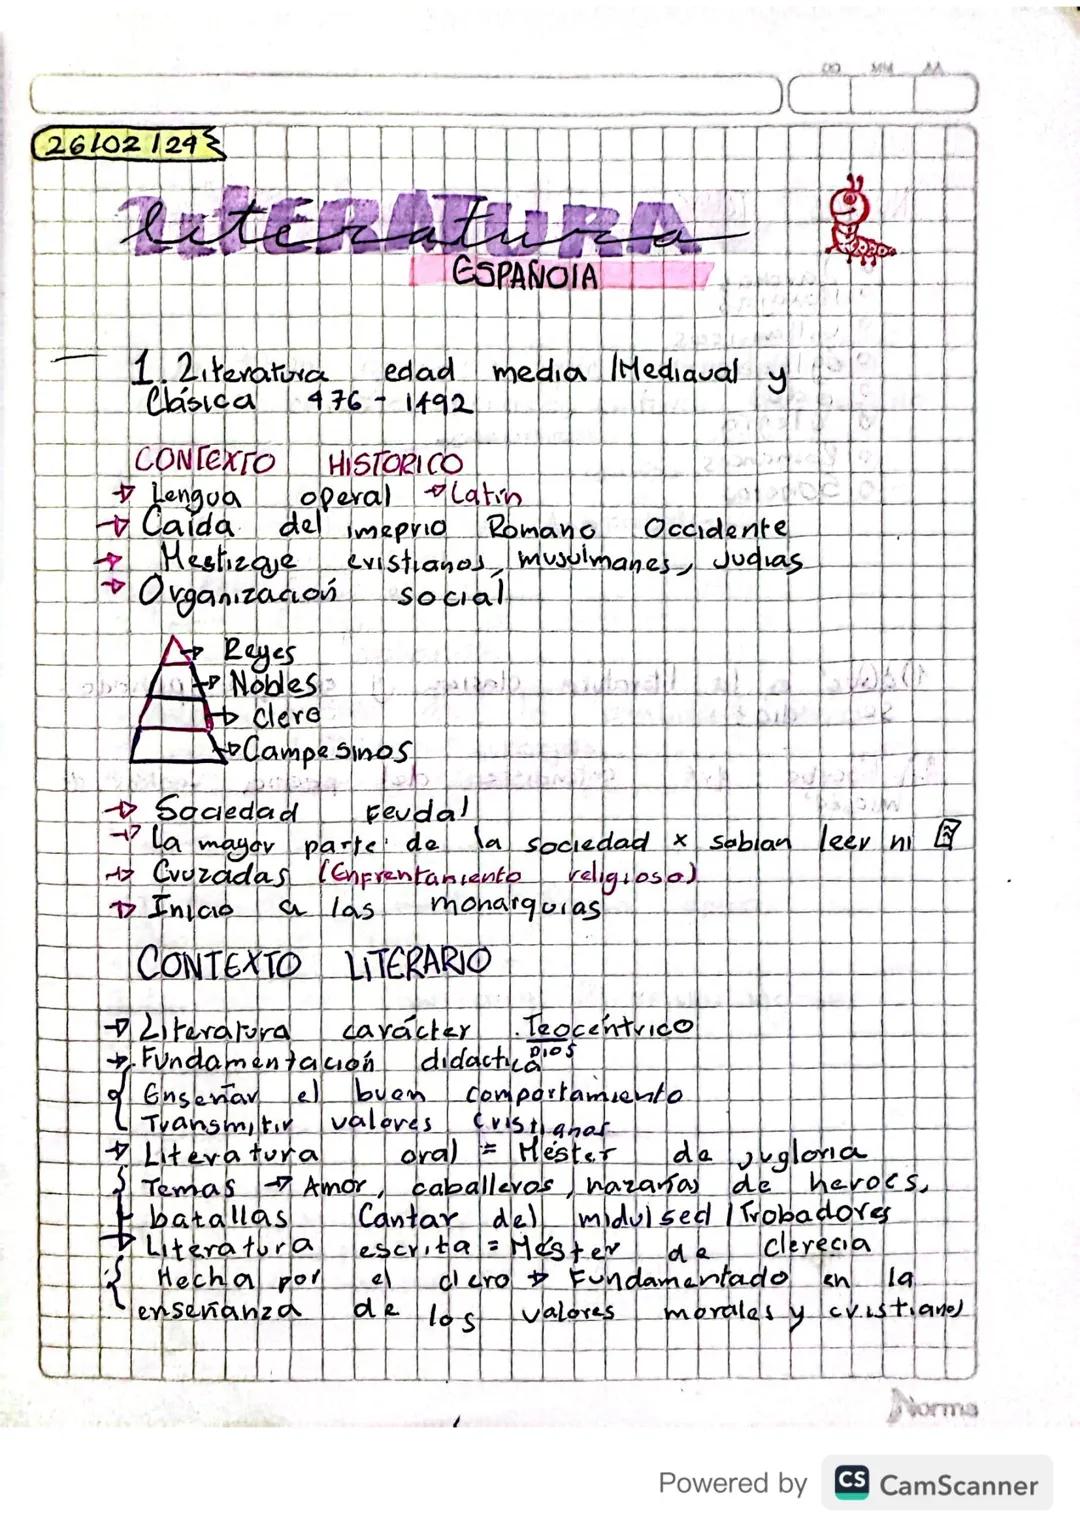 AA MM DD
26/02/24
literatura
ESPAÑOlA
1. Literatura edad media /Mediaval y
Clásica 476 - 1492
CONTEXTO HISTORICO
Lengua operal → Latín
Caída del imeprio Romano Occidente
Mestizaje cristianos, musulmanes, Judias
Organización social
Reyes
Nobles
Clero
Campesinos
Sociedad Feudal
La mayor parte de la sociedad x sabian leer ni
Cruzadas (Enfrentamiento religioso)
Inicio a las monarquias
CONTEXTO LITERARIO
Literatura carácter Teocéntrico
DIOS
Fundamentación didactica
Enseñar el buen comportamiento
Transmitir valores cristianas
Literatura oral = Méster de juglaria
Temas → Amor, caballeros, hazañas de heroes,
batallas Cantar del /Trobadores
Literatura escrita = Méster de clerecia
Hecha por el clero → Fundamentado en la
enseñanza de los valores morales y cristianos
Norma
Powered by CS CamScanner